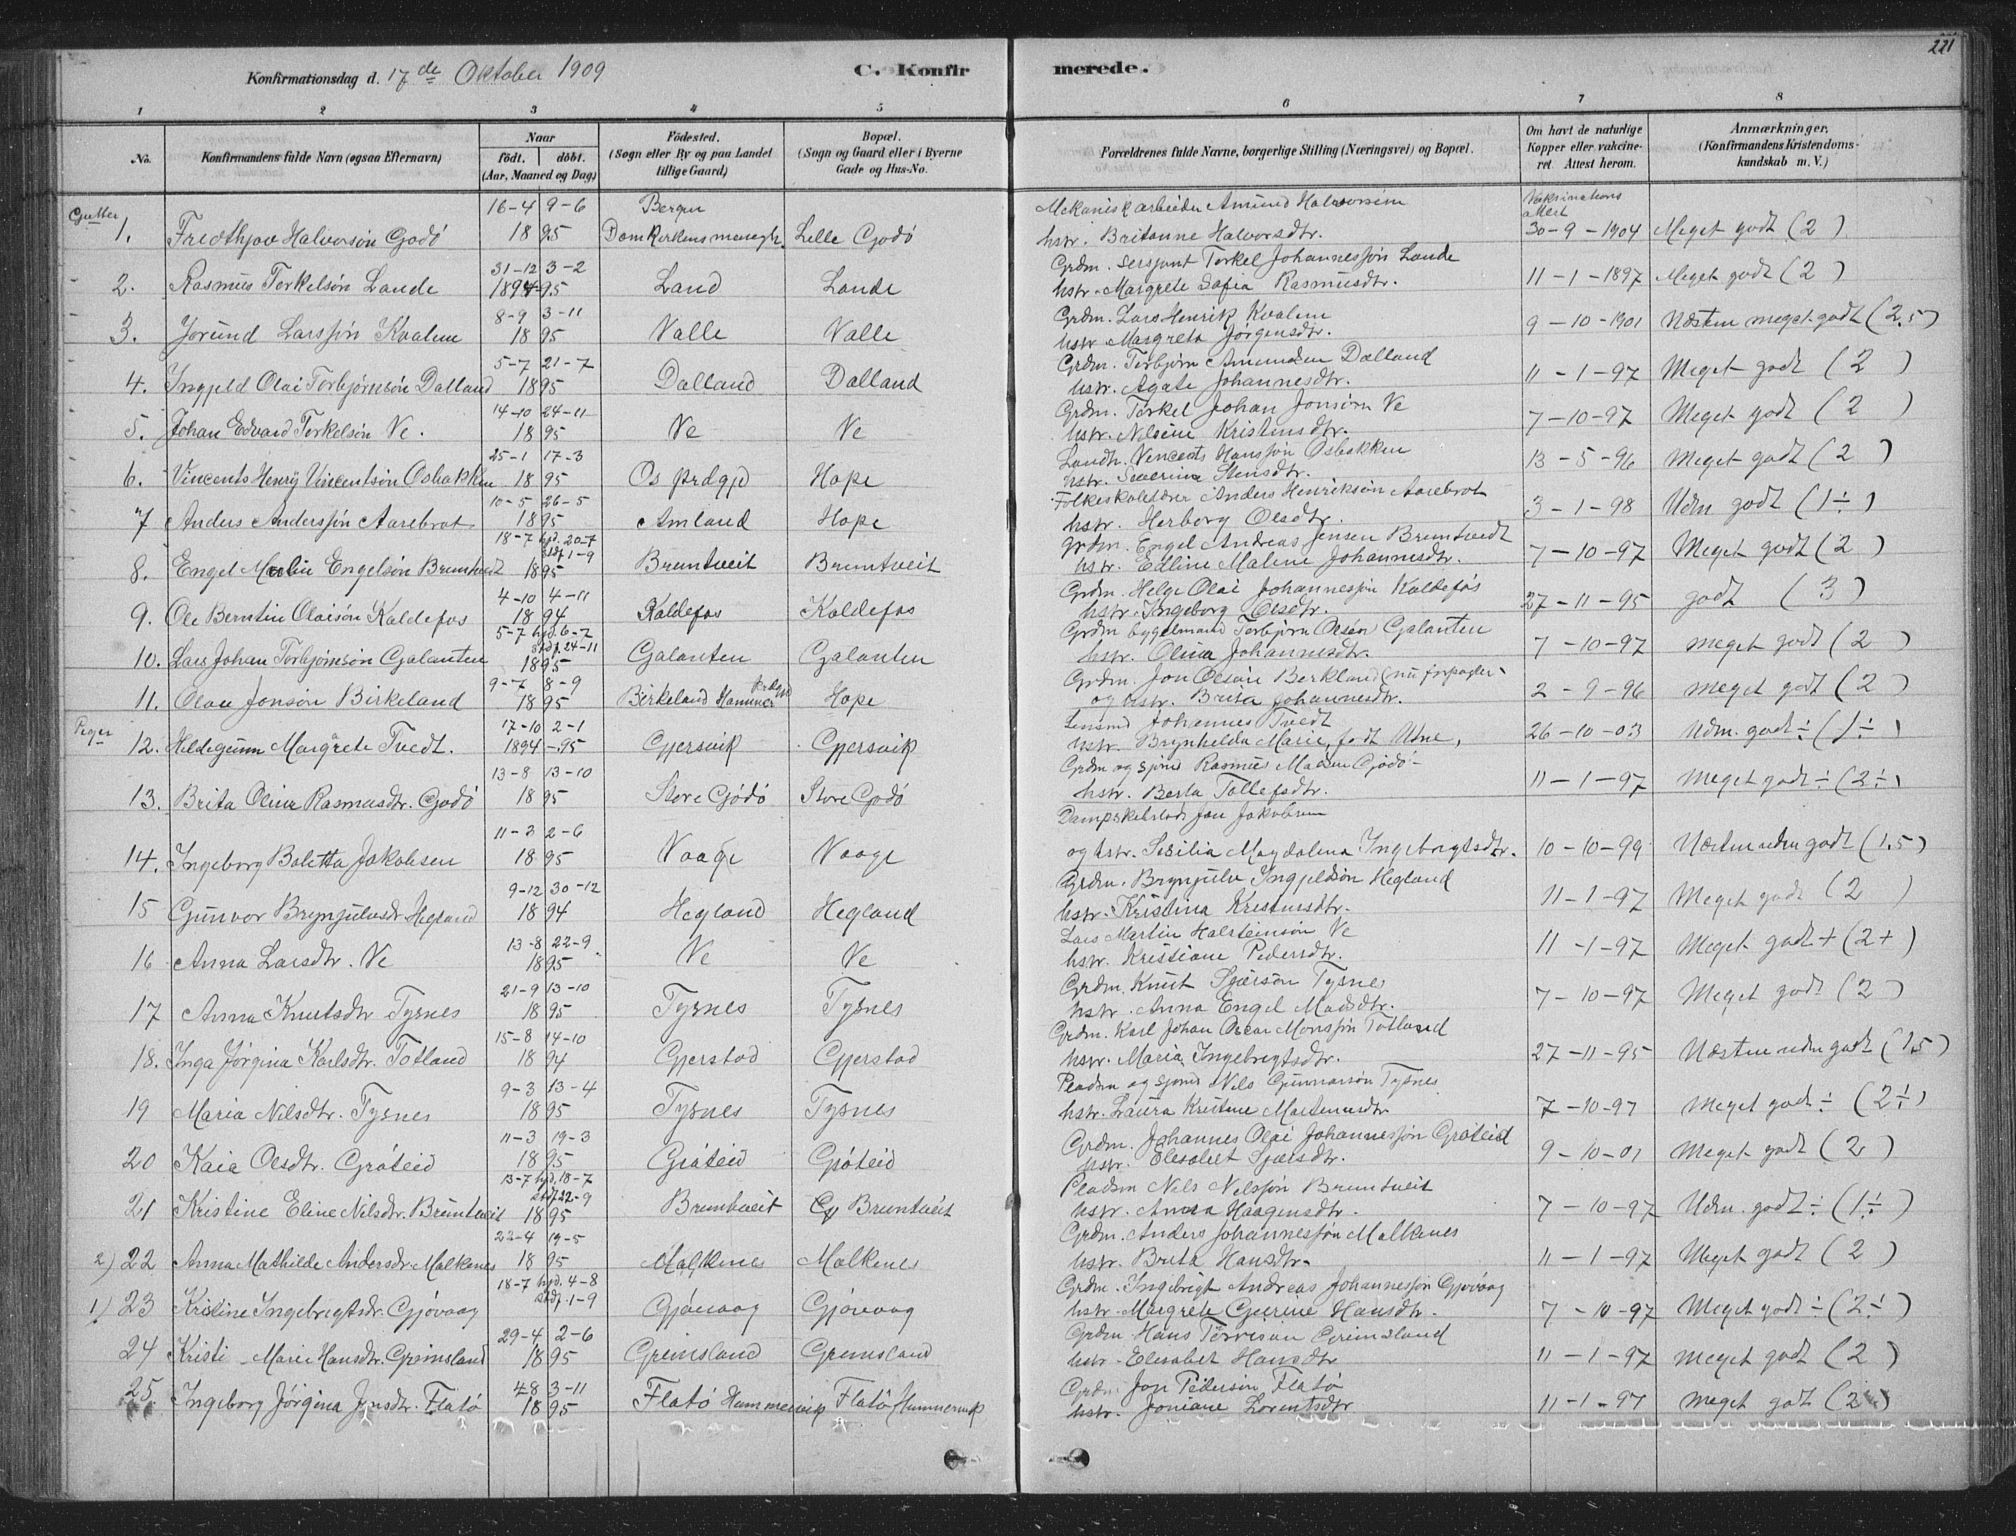 221
Konfirmationsdag d. 17de Oktober 1909
C. Konfirmerede.
1 2 3 4 5 6 7 8
No. Konfirmandens fulde Navn (ogsaa Efternavn) Naar født. døbt. (Aar, Maaned og Dag) Födested. (Sogn eller By og paa Landet tillige Gaard) Bopæl. (Sogn og Gaard eller i Byerne Gade og Hus-No. Forældrenes fulde Navne, borgerlige Stilling (Næringsvei) og Bopæl. Om havt de naturlige Kopper eller vakcineret. Attest herom. Anmærkninger. (Konfirmandens Kristendomskundskab m. V.)
Gutter
16-4 9-6 Bergen Mekanisk arbeider Amund Halvorsen Vaksinations attest
1. Fredthjov Halvorsön Godö 1895 Domkirkens menegh. Lille Godö hstr. Britanne Halvorsdtr. 30-9-1904 Meget godt (2)
31-12 3-2 Grdm. Sersjant Torkel Johannessön Lande
2. Rasmus Torkelsön Lande 1894-95 Land Lande hstr. Margrete Sofia Rasmusdtr. 11-1-1897 Meget godt (2)
8-9 3-11 Grdm. Lars Henrik Kvalem
3. Jorund Larssön Kvalem 1895 Valle Valle hstr. Margreta Jørgensdtr. 9-10-1901 Næsten meget godt (2,5)
5-7 21-7 Grdm. Torbjörn Amunden Dalland
4. Ingjeld Olai Torbjörnsön Dalland 1895 Dalland Dalland hstr. Agate Johannesdtr. 11-1-97 Meget godt (2)
14-10 24-11 Grdm. Torkel Johan Jonsön Ve
5. Johan Edvard Torkelsön Ve. 1895 Ve Ve hstr. Nilsine Kristensdtr. 7-10-97 Meget godt (2)
25-1 17-3 Landh. Vincents Hanssön Osbakken
6. Vincents Henry Vincentsön Osbakken 1895 Os prdgjd Hope hstr. Severina Stensdtr. 13-5-96 Meget godt (2)
10-5 26-5 Folkeskolelærer Anders Henriksön Aarebrot
7 Anders Anderssön Aarebrot 1895 Amland Hope hstr. Herborg Olsdtr. 3-1-98 Udm godt (1÷)
18-7 hjd. 20-7 stdf. 1-9 Grdm. Engel Andreas Jensen Bruntvedt
8. Engel Malin Engelsön Bruntvedt 1895 Bruntveit Bruntveit hstr. Edline Malene Johannesdtr. 7-10-97 Meget godt (2)
4-10 4-11 Grdm. Helge Olai Johannessön Kaldefos
9. Ole Berntin Olaisön Kaldefos 1894 Kaldefos Kaldefos hstr. Ingeborg Olsdtr. 27-11-95 godt (3)
5-7 hjd. 6-7 stdf. 24-11 Grdm bygelmand Torbjörn Olsen Galanten
10. Lars Johan Torbjörnsön Galanten 1895 Galanten Galanten hstr. Olina Johannesdtr. 7-10-97 meget godt (2)
9-7 8-9 prdgjd Grdm. Jon Olsön Berkland (nu forpagter
11. Olav Jonsön Birkeland 1895 Birkeland Hammer Hope og hstr. Brita Johannesdtr. 2-9-96 meget godt (2)
Piger
17-10 2-1 Lensmd Johannes Tvedt
12. Hildegunn Margrete Tvedt. 1894-95 Gjersvik Gjersvik hstr. Brynhilda Marie, født Utne, 26-10-03 Udm. godt ÷ (1÷)
13-8 13-10 Grdm og sjmd Rasmus Madsen Godö
13. Brita Olina Rasmusdtr. Godö 1895 Store Godö Store Godö hstr. Berta Tollefsdtr. 11-1-97 Meget godt ÷ (2÷)
11-3 2-6 Dampskibslods Jon Jakobsen
14. Ingeborg Boletta Jakobsen 1895 Vaage Vaage og hstr. Sesilia Magdalena Ingebrigtsdtr. 10-10-99 Næsten udm godt (1,5)
9-12 30-12 Grdm. Brynjulv Ingjeldsön Hegland
15 Gunvor Brynjulvsdr. Hegland 1894 Hegland Hegland hstr. Kristina Kristensdtr. 11-1-97 Meget godt (2)
13-8 22-9 Lars Martin Halsteinsön Ve
16 Anna Larsdtr. Ve 1895 Ve Ve hstr. Kristiane Pedersdtr. 11-1-97 Meget godt + (2+)
21-9 13-10 Grdm. Knut Sjursön Tysnes
17 Anna Knutsdtr Tysnes 1895 Tysnes Tysnes hstr. Anna Engel Madsdtr. 7-10-97 Meget godt (2)
15-8 14-10 Grdm. Karl Johan Oscar Monssön Totland
18. Inga Jørgina Karlsdtr. Totland 1894 Gjerstad Gjerstad hstr. Maria Ingebrigtsdtr. 27-11-95 Næsten udm godt (1,5)
9-3 13-4 Pladsm og sjmd Nils Gunnarsön Tysnes
19 Maria Nilsdtr. Tysnes 1895 Tysnes Tysnes hstr. Laura Kristine Martinusdtr 7-10-97 Meget godt ÷ (2÷)
11-3 19-3 Grdm. Johannes Olai Johannessön Gröteid
20 Kaia Olsdtr. Gröteid 1895 Gröteid Gröteid hstr. Elesabet Sjursdtr. 9-10-01 Meget godt (2)
13-7 hjd. 18-7 stdf. 22-9 Pladsm Nils Nilssön Bruntveit
21 Kristine Eline Nilsdtr. Bruntveit 1895 Bruntveit Bruntveit hstr. Anna Haagensdtr. 7-10-97 Udm. godt ÷ (1÷)
22-4 19-5 Grdm. Anders Johannessön Malkenes
2) 22 Anna Mathilde Andersdr. Malkenes 1895 Malkenes Malkenes hstr. Brita Hansdtr. 11-1-97 Meget godt (2)
18-7 hjd. 4-8 stdf. 1-9 Grdm. Ingebrigt Andreas Johannessön Gjövaag
1) 23 Kristine Ingebrigtsdr. Gjövaag 1895 Gjövaag Gjövaag hstr. Margrete Geirine Hansdtr. 7-10-97 Meget godt ÷ (2÷)
29-4 2-6 Grdm Hans Grimsland
24 Kristi Marie Hansdtr. Grimsland 1895 Greimsland Gremsland hstr. Elesabet Hansdtr 11-1-97 meget godt (2)
4-8 3-11 Grdm. Jon Pedersön Flatö
25. Ingeborg Jørgina Jonsdtr. Flatö 1895 Flatö Hammervik Flatö Hammervik hstr. Joniane Lorentsdtr 11-1-97 Meget godt (2)